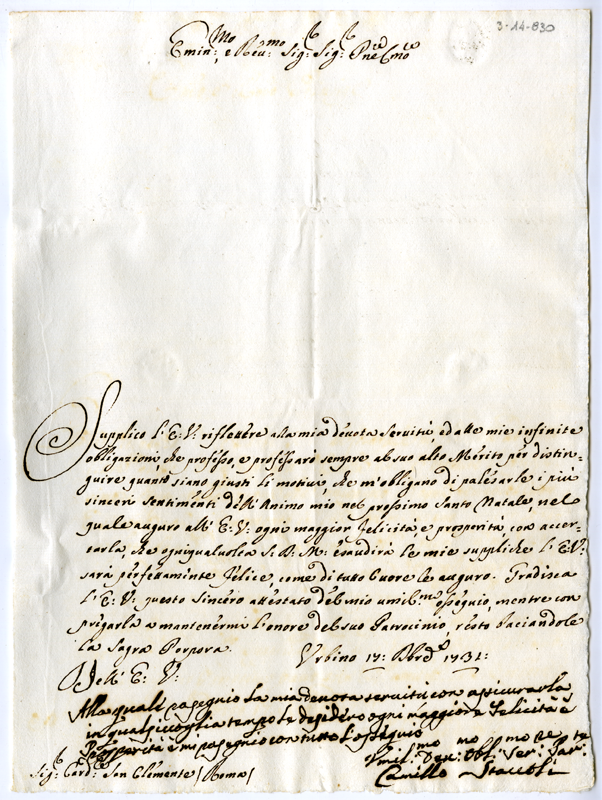 3-14-830
Emin:mo, e Reu:mo Sig:r Sig:r Pne Cmo
Supplico l'E:V: riflettere alla mia deuota seruitù, ed alle mie infinite
obligazioni, che professo, e professarò sempre al suo alto Merito per distin=
guire quanto siano giusti li motiui, che m'obligano di palesarle i più
sinceri sentimenti dell'Animo mio nel prossimo Santo Natale, nel
quale auguro all'E:V: ogni maggior felicità, e prosperità, con accer=
tarla, che ogniqualuolta S.D:M: esaudirà le mie suppliche l'E:V:
sarà perfettamente felice, come di tutto Cuore le auguro. Gradisca
l'E:V: questo sincero attestato del mio umil:mo ossequio, mentre con
pregarla a mantenermi l'onore del suo Patrocinio, resto baciandole
la Sagra Porpora. Urbino 17: Xbre 1731:
Dell'E:V:
Alla quale rasegnio la mia deuota seruitù con asicurarla
in qual si uoglia tempo le desidero ogni maggiore Felicità e
Prosperità e mi rasegnio con tutto l'ossequio
Umil:mo Deu:mo Obl:mo Ser:
Sig:r Card: San Clemente / Roma / Camillo Staccoli